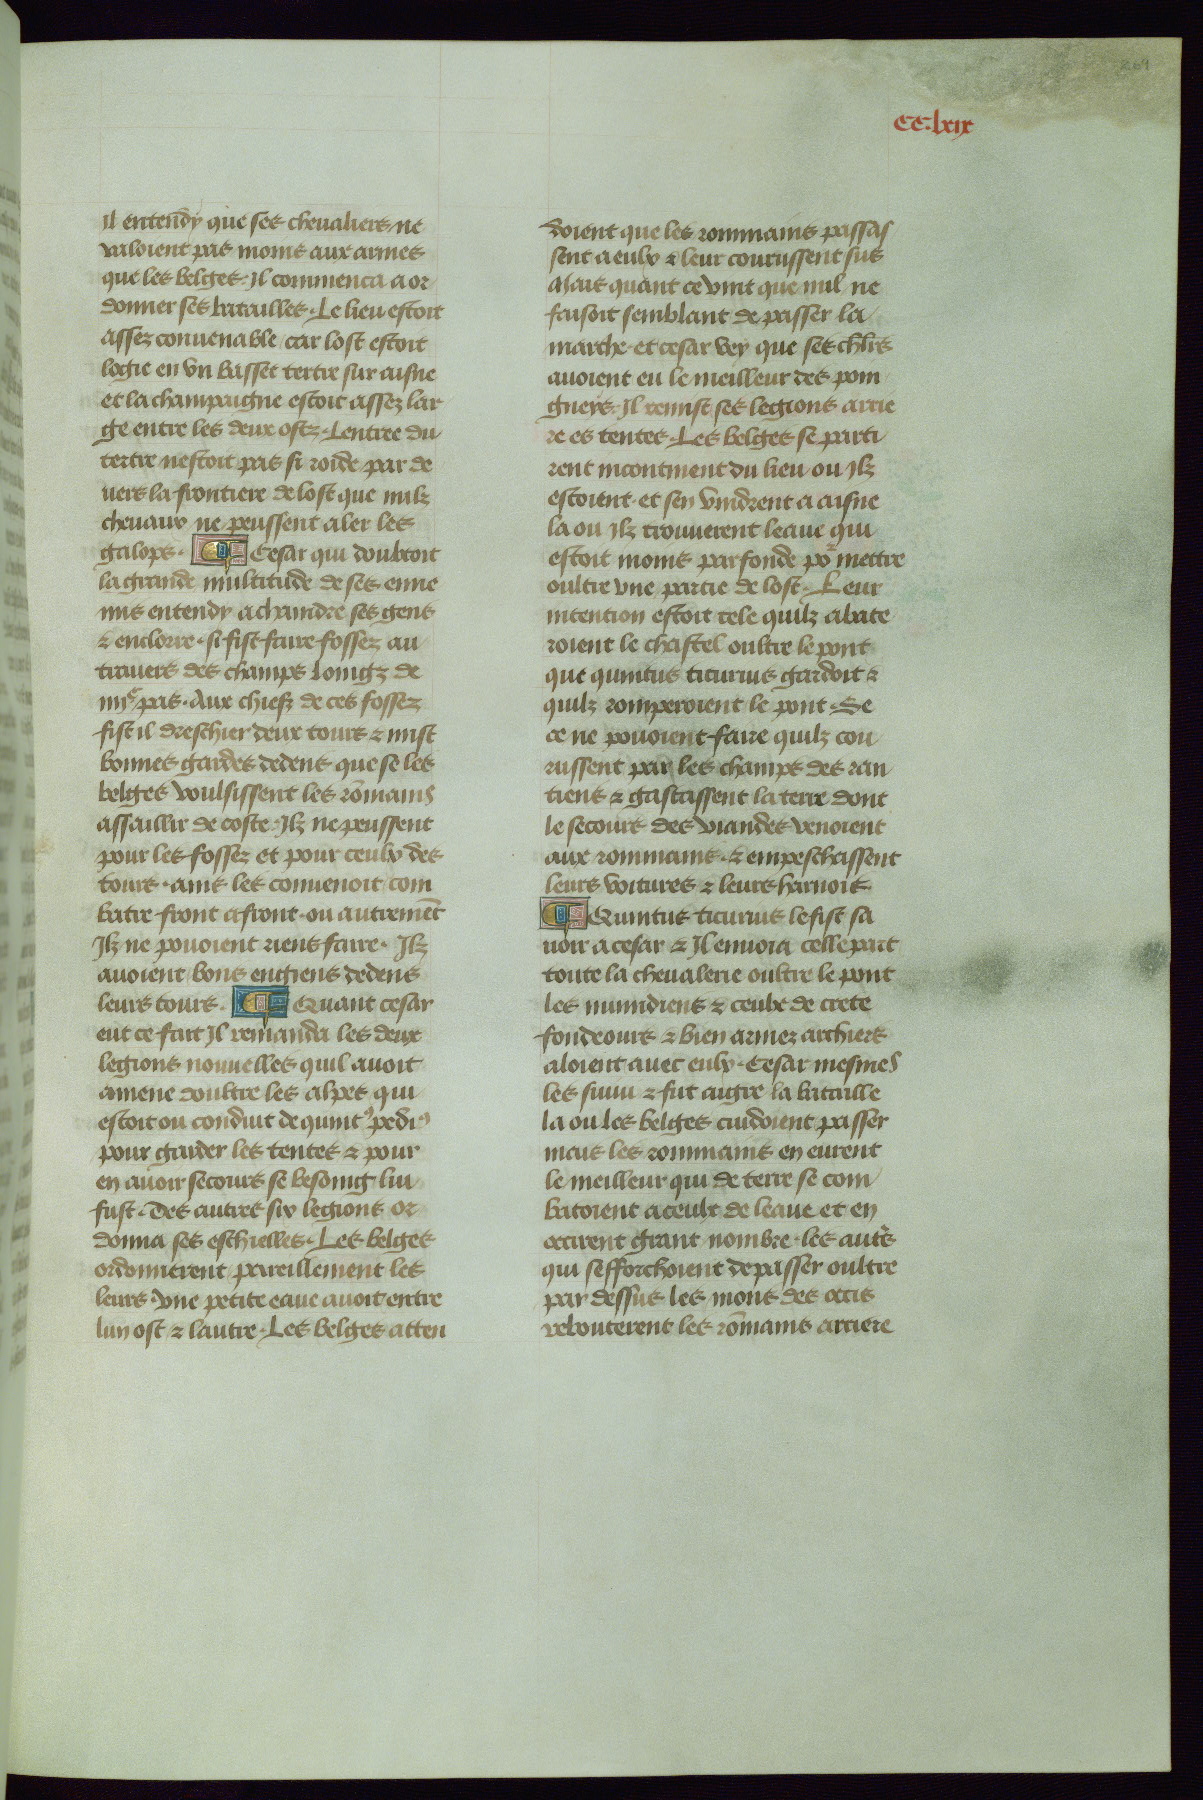 204
CC.lxix
il entendy que ses cheualiers ne
valoient pas moins aux armes
que les belges. Il commenca a or
donner ses batailles. Le lieu estoit
assez conuenable car lost estoit
logie en vn basset tertre sur aisne
et la champaigne estoit assez lar
ge entre les deux ostz. Lentree du
tertre nestoit pas si roide par de
uers la frontiere de lost que nulz
cheuaux ne peussent aler les
galops. Cesar qui doubtoit
la grande multitude de ses enne
mis entendy a chaindre ses gens
& enclorre. si fist faire fossez au
trauers des champs longz de
iiijc pas. Aux chiefz de ces fossez
fist il dreschier deux tours & mist
bonnes gardes dedens que se les
belges voulsissent les rōmains
assaillir de coste. Ilz ne peussent
pour les fossez et pour ceulx des
tours. ains les conuenoit com
batre front a front. ou autremēt
Ilz ne pouoient riens faire. Ilz
auoient bons engiens dedens
leurs tours. Quant cesar
eut ce fait Il remanda les deux
legions nouuelles quil auoit
amene doultre les alpes qui
estoit ou conduit de quintꝰ pediꝰ
pour garder les tentes & pour
en auoir secours se besoing lui
fust. Des autres six legions or
donna ses eschielles. Les belges
ordonnerent pareillement les
leurs. vne petite eaue auoit entre
lun ost & lautre. Les belges atten
doient que les rommains passas
sent a eulx & leur courussent sus
Mais quant ce vint que nul ne
faisoit semblant de passer la
marche. et cesar vey que ses chl̄rs
auoient eu le meilleur des poin
gneys. Il remist ses legions arrie
re es tentes. Les belges se parti
rent incontinent du lieu ou Ilz
estoient. et sen vindrent a aisne
la ou Ilz trouuerent leaue qui
estoit moins parfonde por mettre
oultre vne partie de lost. Leur
intention estoit tele quilz abate
roient le chastel oultre le pont
que quintus titurius gardoit &
quilz romperoient le pont. Se
ce ne pouoient faire quilz cou
russent par les champs des ran
tiens & gastassent la terre dont
le secours des viandes venoient
aux rommains. & empeschassent
leurs voitures & leurs harnois.
Quintus titurius le fist sa
uoir a cesar & Il enuoia celle part
toute la cheualerie oultre le pont
les numidiens & ceulx de crete
fondeours & bien armez archiers
aloient auec eulx. Cesar mesmes
les suiui & fut aigre la bataille
la ou les belges cuidoient passer
mais les rommains en eurent
le meilleur qui de terre se com
batoient a ceulx de leaue et en
occirent grant nombre. les autrs
qui sefforchoient de passer oultre
par dessus les mons des occis
rebouterent les rōmains arriere